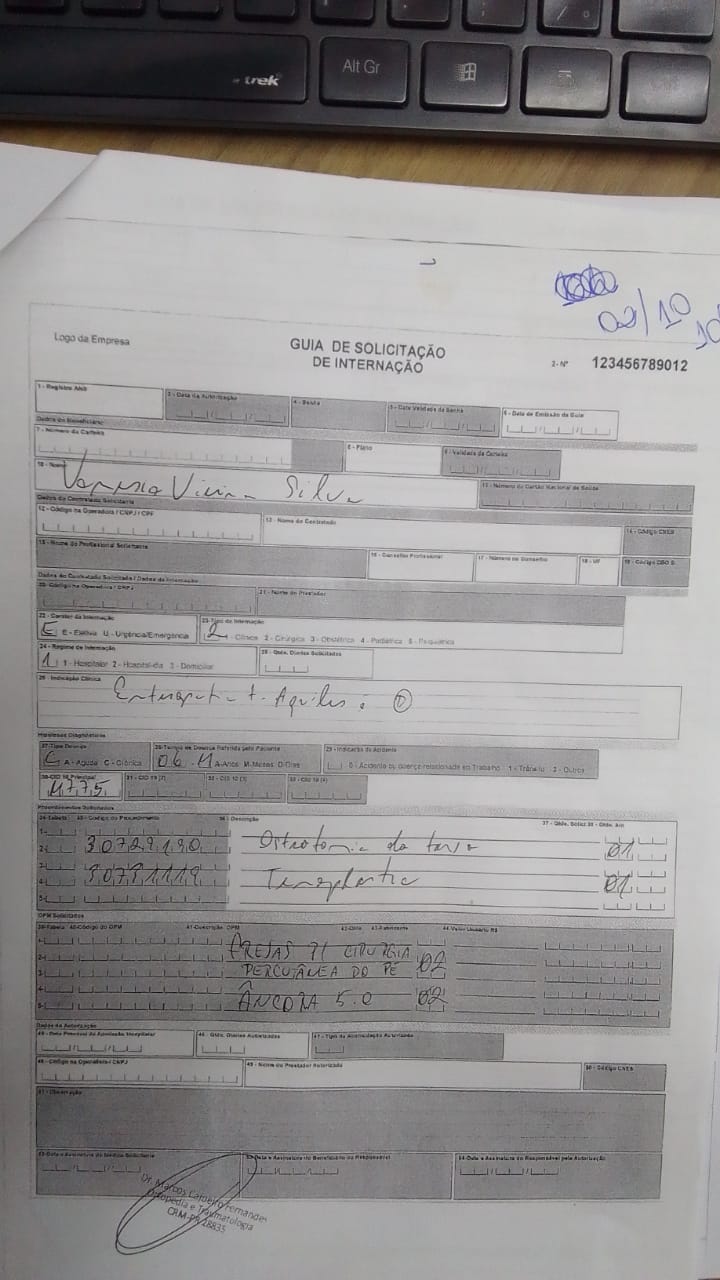 trek
Alt Gr
02/10
Logo da Empresa
GUIA DE SOLICITAÇÃO
DE INTERNAÇÃO
2- Nº 123456789012
1 - Registro ANS
3 - Data da Autorização
4 - Senha
5 - Data Validade da Senha
6 - Data de Emissão da Guia
Dados do Beneficiário
7 - Número da Carteira
8 - Plano
9 - Validade da Carteira
10 - Nome
Vanessa Vieira Silva
11 - Número do Cartão Nacional de Saúde
Dados do Contratado Solicitante
12 - Código na Operadora / CNPJ / CPF
13 - Nome do Contratado
14 - Código CNES
15 - Nome do Profissional Solicitante
16 - Conselho Profissional
17 - Número no Conselho
18 - UF
19 - Código CBO S
Dados do Contratado Solicitado / Dados da Internação
20 - Código na Operadora / CNPJ
21 - Nome do Prestador
22 - Caráter da Internação
E E - Eletiva U - Urgência/Emergência
23 - Tipo de Internação
2 1 - Clínica 2 - Cirúrgica 3 - Obstétrica 4 - Pediátrica 5 - Psiquiátrica
24 - Regime de Internação
1 1 - Hospitalar 2 - Hospital-dia 3 - Domiciliar
25 - Qtde. Diárias Solicitadas
26 - Indicação Clínica
t. Aquiles : D
Hipóteses Diagnósticas
27-Tipo Doença
C A - Aguda C - Crônica
28-Tempo de Doença Referida pelo Paciente
06 - M A-Anos M-Meses D-Dias
29 - Indicação de Acidente
0 - Acidente ou doença relacionado ao Trabalho 1 - Trânsito 2 - Outros
30-CID 10 Principal
M775
31 - CID 10 (2)
32 - CID 10 (3)
33 - CID 10 (4)
Procedimentos Solicitados
34-Tabela 35 - Código do Procedimento
36 - Descrição
37 - Qtde. Solic
38 - Qtde. Aut
1-
2- 30729190 Osteotomia do tarso 01
3-
4- 30731119 Tenoplastia 01
5-
OPM Solicitados
39-Tabela 40-Código do OPM 41-Descrição OPM 42-Qtde 43-Fabricante 44-Valor Unitário R$
1-
2- FRESAS P/ CIRURGIA
3- PERCUTÂNEA DO PÉ 02
4-
5- ÂNCORA 5.0 02
Dados da Autorização
45 - Data Provável da Admissão Hospitalar
46 - Qtde. Diárias Autorizadas
47 - Tipo da Acomodação Autorizada
48 - Código na Operadora / CNPJ
49 - Nome do Prestador Autorizado
50 - Código CNES
51 - Observação
52-Data e Assinatura do Médico Solicitante
53-Data e Assinatura do Beneficiário ou Responsável
54-Data e Assinatura do Responsável pela Autorização
Dr. Marcos Fernandes
Ortopedia e Traumatologia
CRM-PR 18835